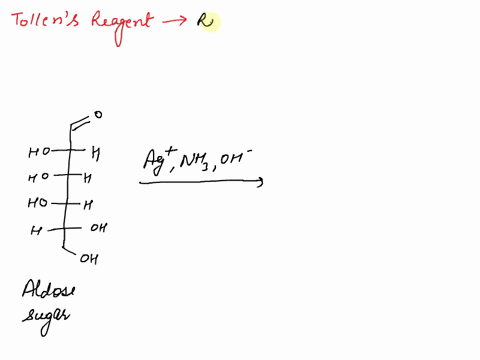 Tollen's Reagent → R
O
HO H
Ag⁺, NH₃, OH⁻
HO H
HO H
H OH
OH
Aldose
sugar